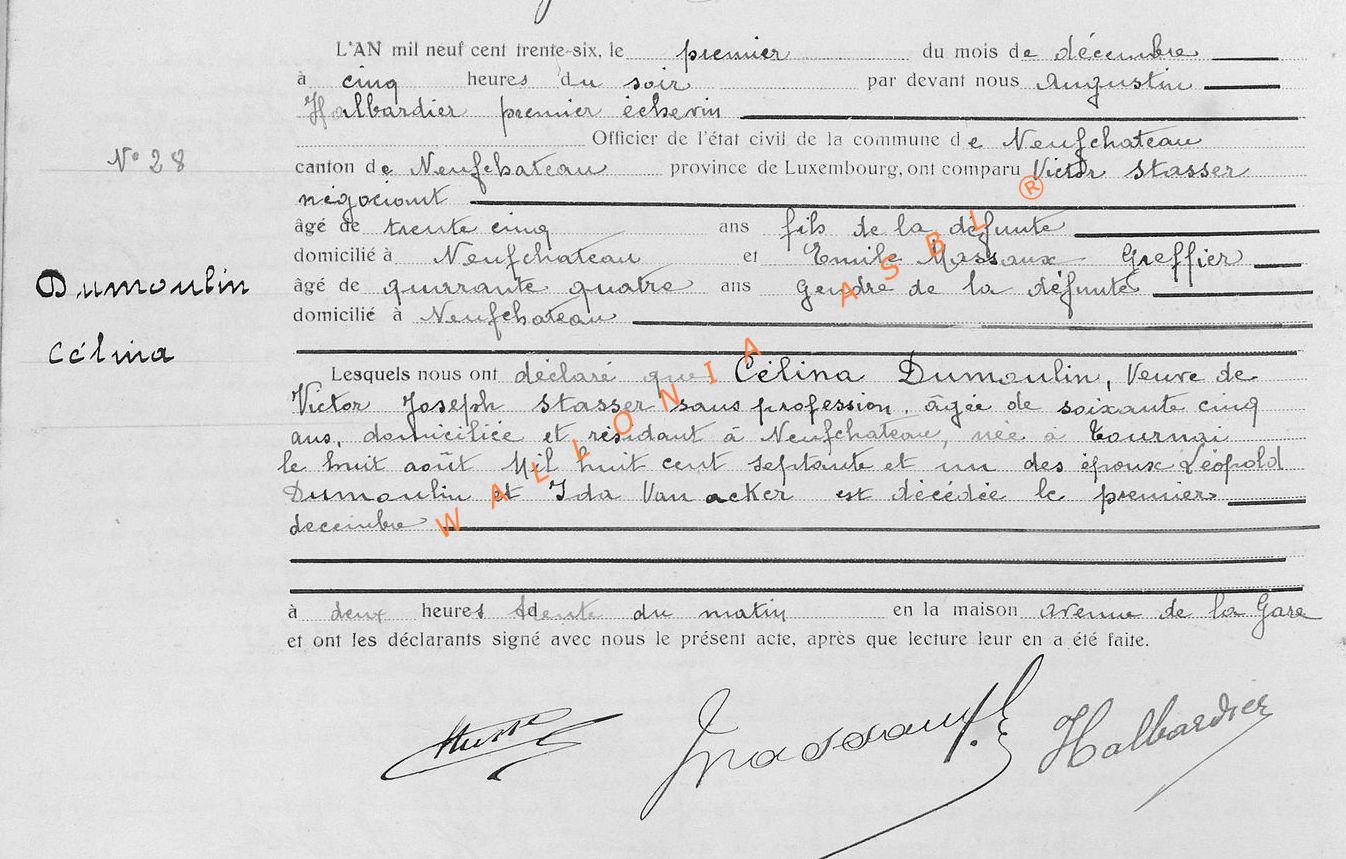 L'AN mil neuf cent trente-six, le premier du mois de décembre
à cinq heures du soir par devant nous Augustin
Halbardier premier échevin
Officier de l'état civil de la commune de Neufchateau
N° 28
canton de Neufchateau province de Luxembourg, ont comparu Victor Stasser
négociant
âgé de trente cinq ans fils de la défunte
domicilié à Neufchateau et Emile Massaux Greffier
Dumoulin
âgé de quarante quatre ans gendre de la défunte
domicilié à Neufchateau
Célina
Lesquels nous ont déclaré que Célina Dumoulin, Veuve de
Victor Joseph Stasser sans profession, âgée de soixante cinq
ans, domiciliée et résidant à Neufchateau, née à Tournai
le huit août Mil huit cent septante et un des époux Léopold
Dumoulin et Ida Van acker est décédée le premier
decembre
à deux heures trente du matin en la maison avenue de la Gare
et ont les déclarants signé avec nous le présent acte, après que lecture leur en a été faite.
Halbardier
WALLONIA ASBL ®